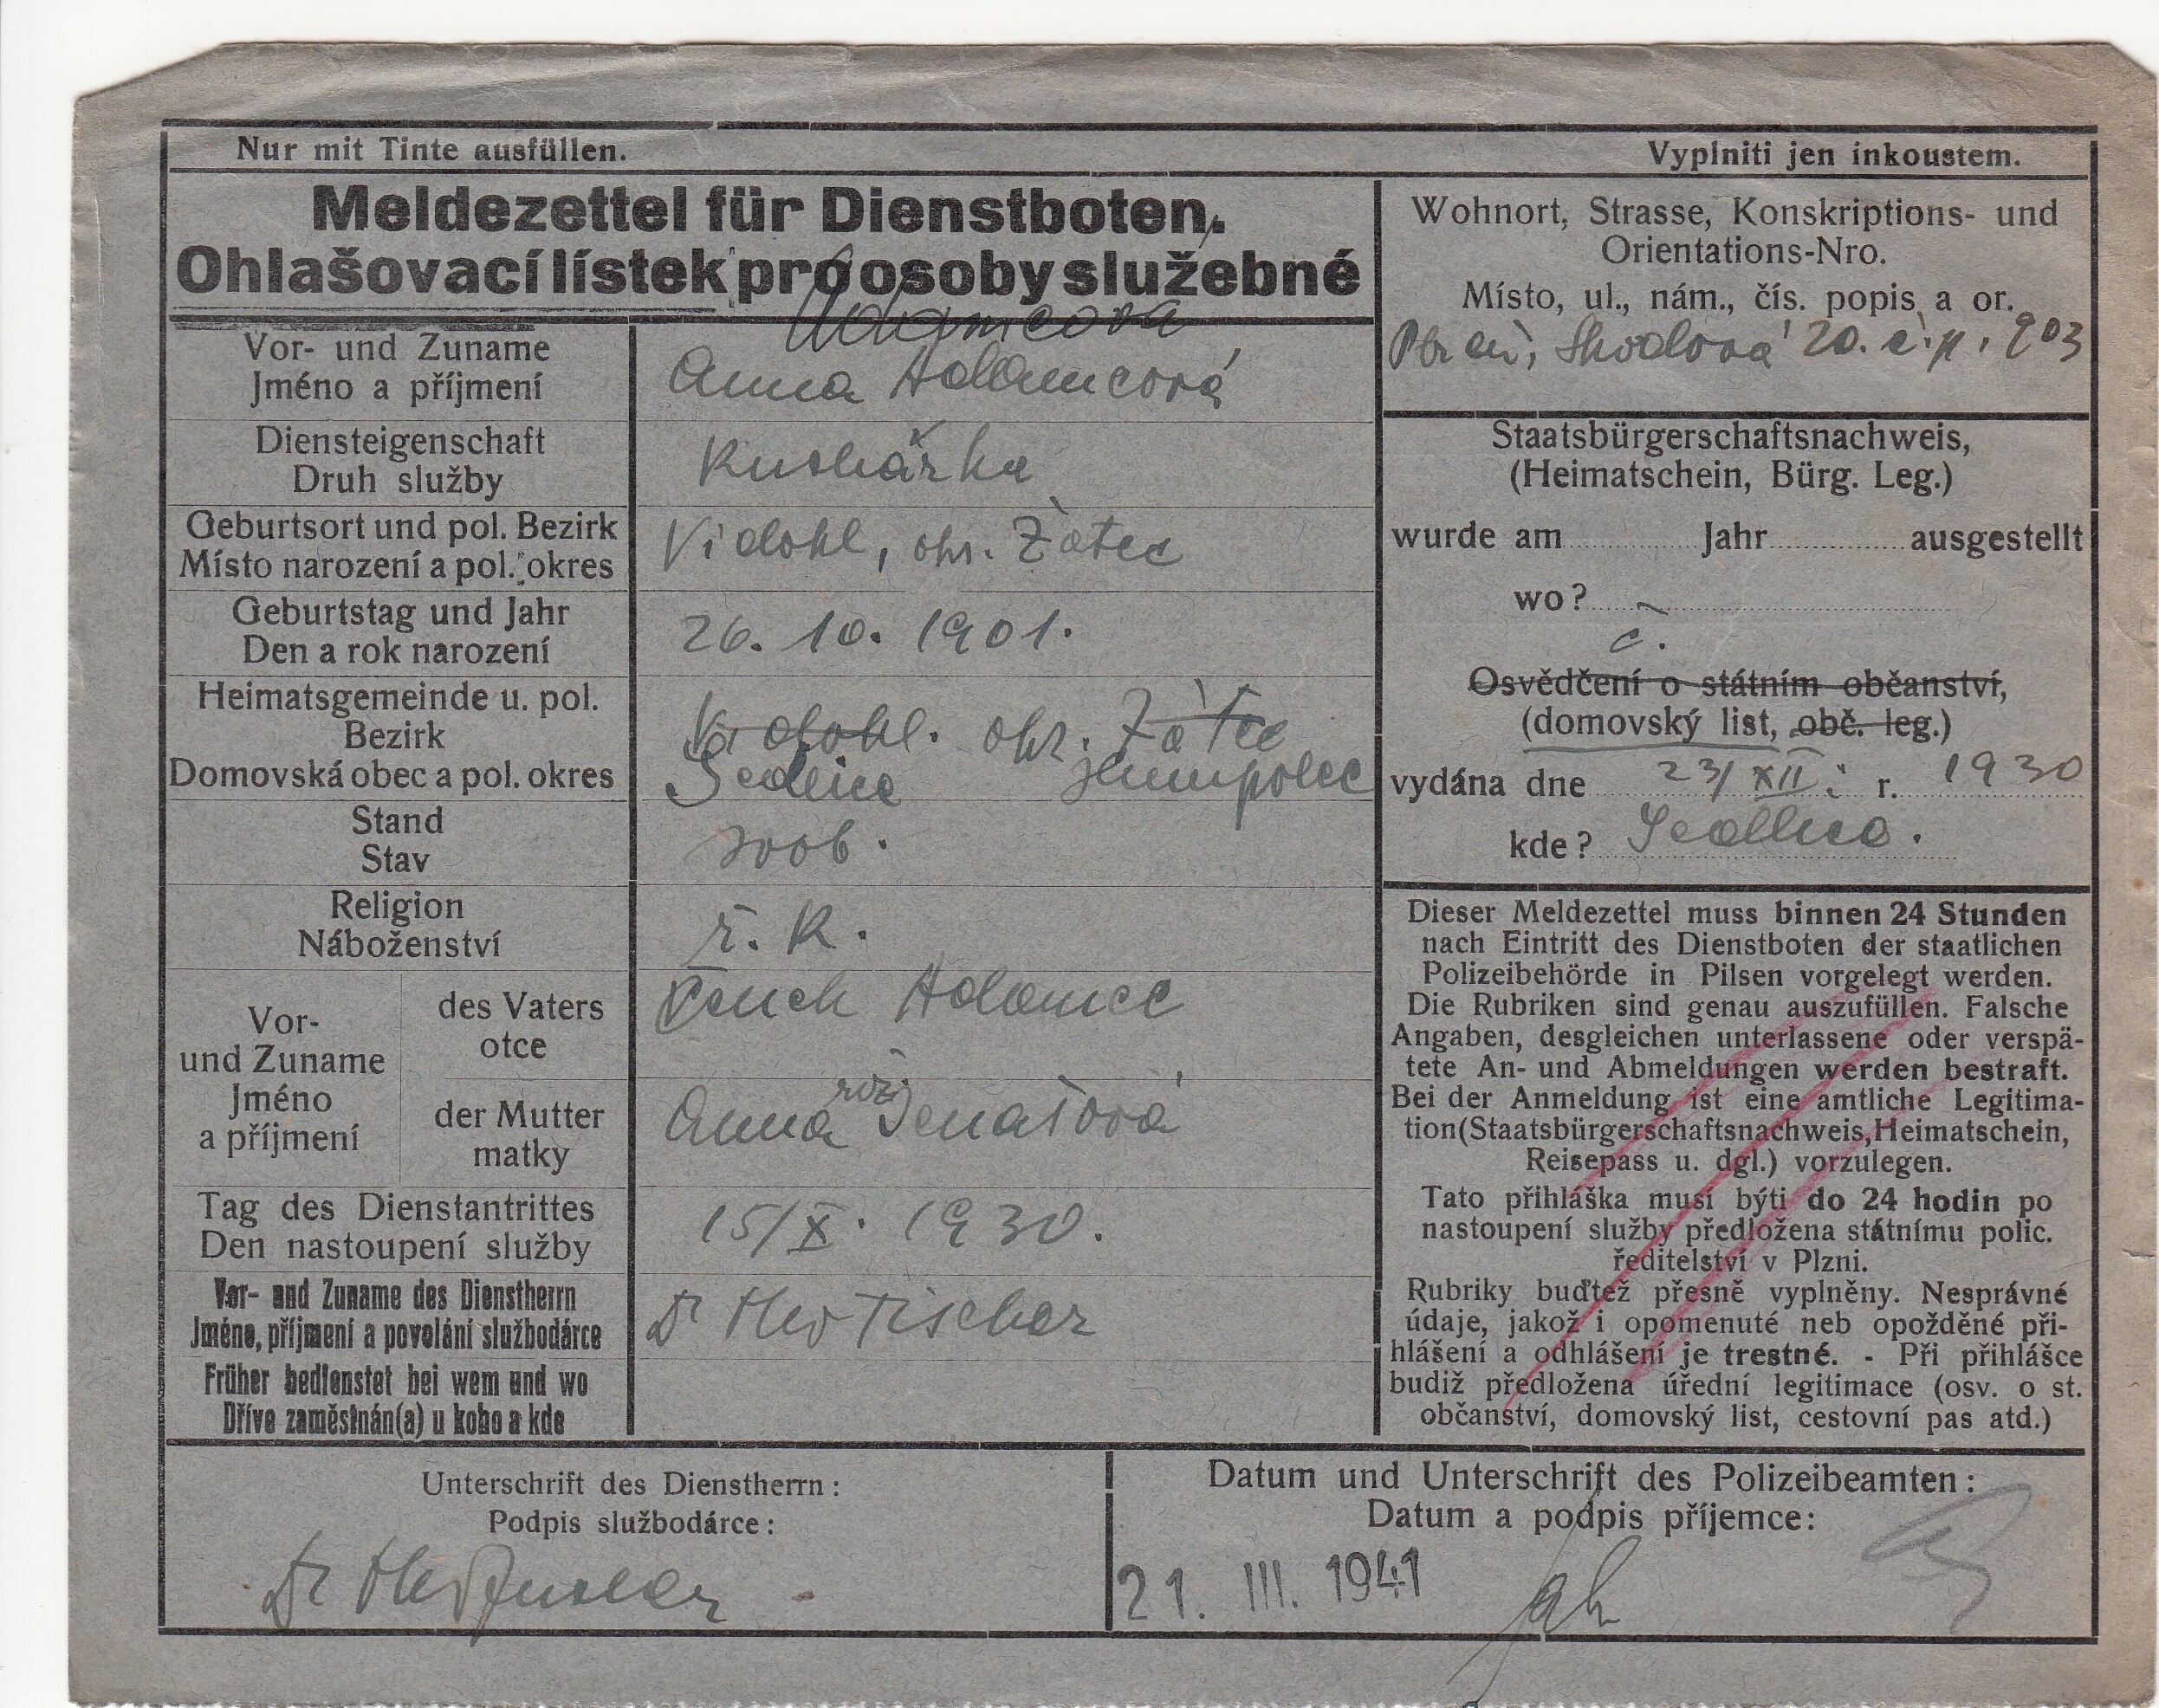 Nur mit Tinte ausfüllen.
Vyplniti jen inkoustem.
Meldezettel für Dienstboten.
Ohlašovací lístek pro osoby služebné
Adamcová
Vor- und Zuname
Jméno a příjmení
Anna Adamcová
Diensteigenschaft
Druh služby
Kuchařka
Geburtsort und pol. Bezirk
Místo narození a pol. okres
Vidohl, okr. Žatec
Geburtstag und Jahr
Den a rok narození
26. 10. 1901.
Heimatsgemeinde u. pol.
Bezirk
Domovská obec a pol. okres
Vidohl. okr. Žatec
Sedlice Humpolec
Stand
Stav
svob.
Religion
Náboženství
ř. k.
Vor-
und Zuname
Jméno
a příjmení
des Vaters
otce
Čeněk Adamec
der Mutter
matky
Anna roz.
Tag des Dienstantrittes
Den nastoupení služby
15/X. 1930.
Vor- und Zuname des Dienstherrn
Jméno, příjmení a povolání službodárce
Dr Theo Tischer
Früher bedienstet bei wem und wo
Dříve zaměstnán(a) u koho a kde
Wohnort, Strasse, Konskriptions- und
Orientations-Nro.
Místo, ul., nám., čís. popis a or.
Plzeň, Škodova 20. č. p. 903
Staatsbürgerschaftsnachweis,
(Heimatschein, Bürg. Leg.)
wurde am Jahr ausgestellt
wo?
Osvědčení o státním občanství,
(domovský list, obč. leg.)
vydána dne 23/XII. r. 1930
kde? Sedlice.
Dieser Meldezettel muss binnen 24 Stunden
nach Eintritt des Dienstboten der staatlichen
Polizeibehörde in Pilsen vorgelegt werden.
Die Rubriken sind genau auszufüllen. Falsche
Angaben, desgleichen unterlassene oder verspä-
tete An- und Abmeldungen werden bestraft.
Bei der Anmeldung ist eine amtliche Legitima-
tion(Staatsbürgerschaftsnachweis,Heimatschein,
Reisepass u. dgl.) vorzulegen.
Tato přihláška musí býti do 24 hodin po
nastoupení služby předložena státnímu polic.
ředitelství v Plzni.
Rubriky buďtež přesně vyplněny. Nesprávné
údaje, jakož i opomenuté neb opožděné při-
hlášení a odhlášení je trestné. - Při přihlášce
budiž předložena úřední legitimace (osv. o st.
občanství, domovský list, cestovní pas atd.)
Unterschrift des Dienstherrn:
Podpis službodárce:
Dr Theo Tischer
Datum und Unterschrift des Polizeibeamten:
Datum a podpis příjemce:
21. III. 1941